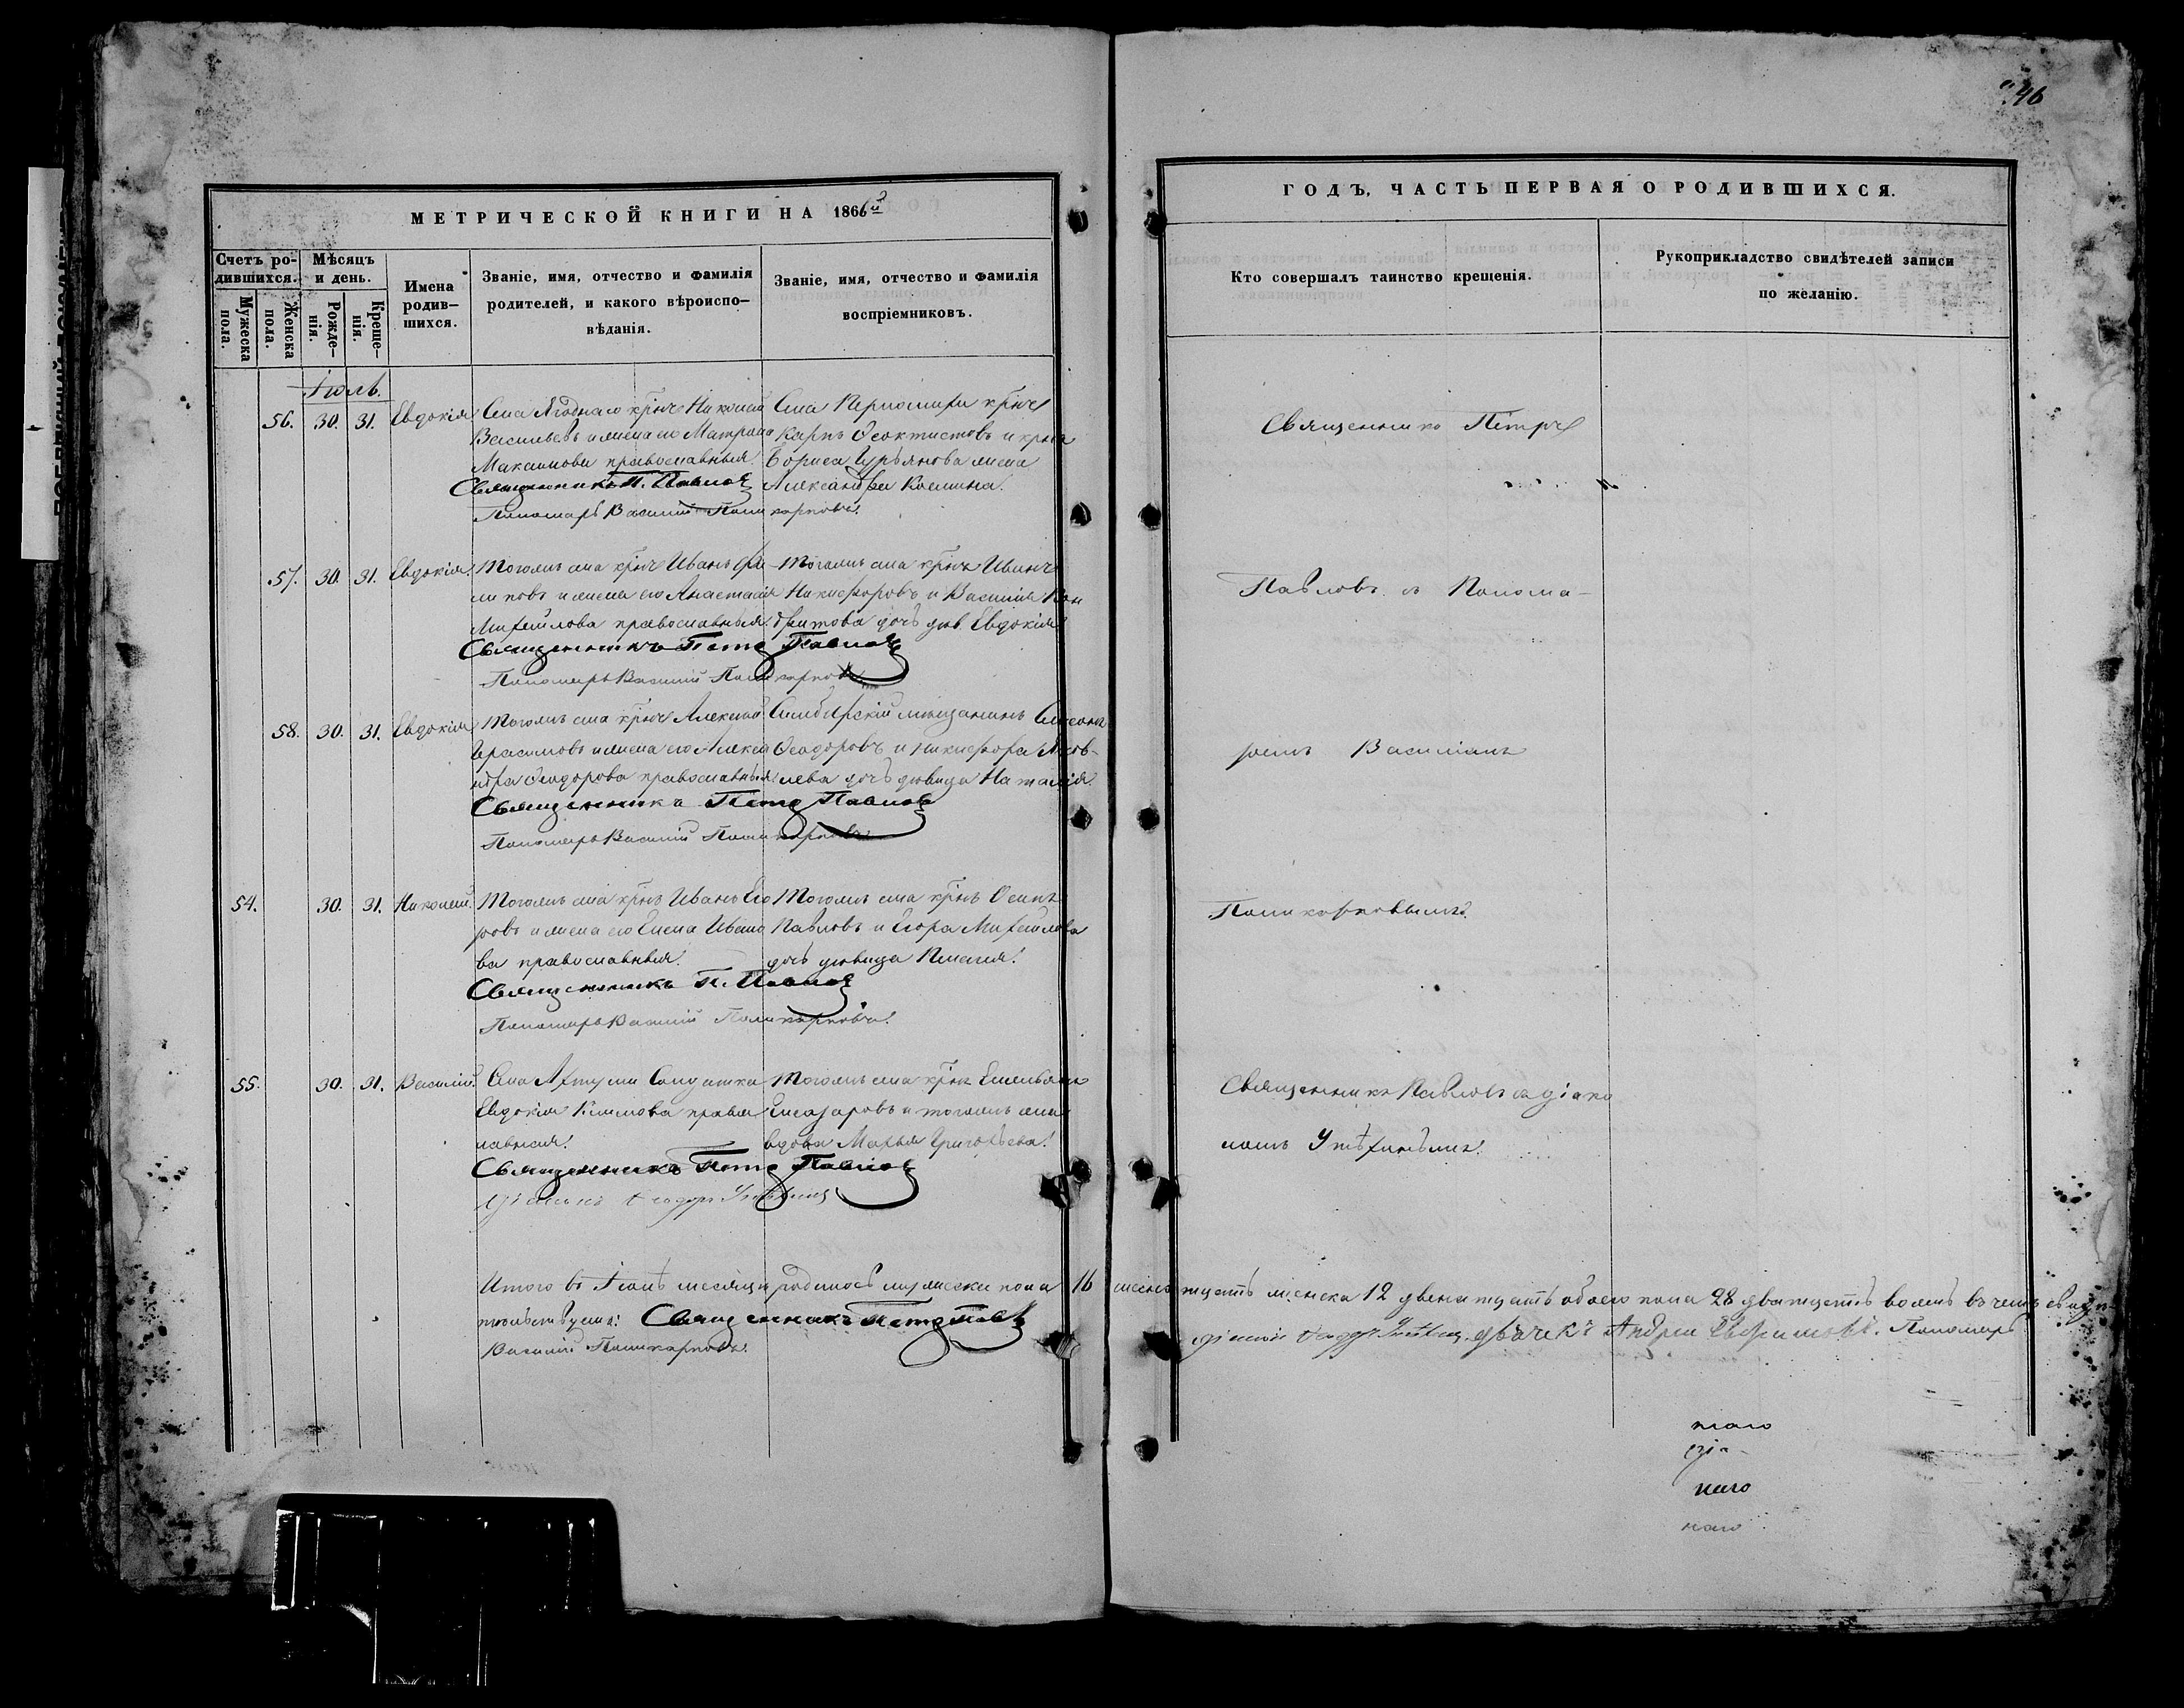 46
МЕТРИЧЕСКОЙ КНИГИ НА 1866й
ГОДЪ, ЧАСТЬ ПЕРВАЯ О РОДИВШИХСЯ.
Счетъ ро-
дившихся.
Мужеска
пола.
Женска
пола.
Мѣсяцъ
и день.
Рожде-
нія.
Креще-
нія.
Имена
родив-
шихся.
Званіе, имя, отчество и фамилія
родителей, и какого вѣроиспо-
вѣданія.
Званіе, имя, отчество и фамилія
воспріемниковъ.
Кто совершалъ таинство крещенія.
Рукоприкладство свидѣтелей записи
по желанію.
Іюль.
56. 30. 31. Евдокія
Села Ягоднаго кр̃нъ Николай
Васильевъ и жена его Матрона
Максимова православныя.
Священникъ П. Павловъ
Пономарь Василій Поликарповъ.
Села кр̃нъ
Карпъ Ѳеоктистовъ и кр̃на
Бориса Гурьянова жена
Александра Козмина.
Священникъ Петръ
57. 30. 31. Евдокія.
Тогожъ села кр̃нъ Иванъ Фи-
липовъ и жена его Анастасія
Михайлова православныя.
Священникъ Петръ Павловъ
Пономарь Василій Поликарповъ
Тогожъ села кр̃нъ Иванъ
Никифоровъ и Василія Кон
дратова дочь дѣв. Евдокія
Павловъ съ Понома-
58. 30. 31. Евдокія
Тогожъ села кр̃нъ Алексѣй
Герасимовъ и жена его Алексан
дра Ѳеодорова православныя
Священникъ Петръ Павловъ
Пономарь Василій Поликарповъ
Симбирскій мѣщанинъ Симеонъ
Ѳеодоровъ и Никифора Яков-
лева дочь дѣвица Наталія.
ремъ Василіемъ
54. 30. 31. Николай.
Тогожъ села кр̃нъ Иванъ Его
ровъ и жена его Елена Ивано
ва православныя.
Священникъ П. Павловъ
Пономарь Василій Поликарповъ.
Тогожъ села кр̃нъ Осипъ
Павловъ и Егора Михайлова
дочь дѣвица Пелагия.
Поликарповымъ.
55. 30. 31. Василій.
Села Солдатка
Евдокія Климова правос
лавная.
Священникъ Петръ Павловъ
Діаконъ Ѳеодоръ
Тогожъ села кр̃нъ Емельянъ
Елазаровъ и тогожъ села
вдова Марья Григорьева.
Священникъ Павловъ съ діако
номъ
Итого въ Іюлѣ месяцѣ родилось мужеска пола 16 шестнатцать женска 12 двенатцать обоего пола 28 дватцать восемь въ чемъ свидѣ-
тельствуемъ: Священникъ Петръ Павловъ діаконъ Ѳеодоръ дьячекъ Андрей Ефимовъ. Пономарь
Василій Поликарповъ.
наго